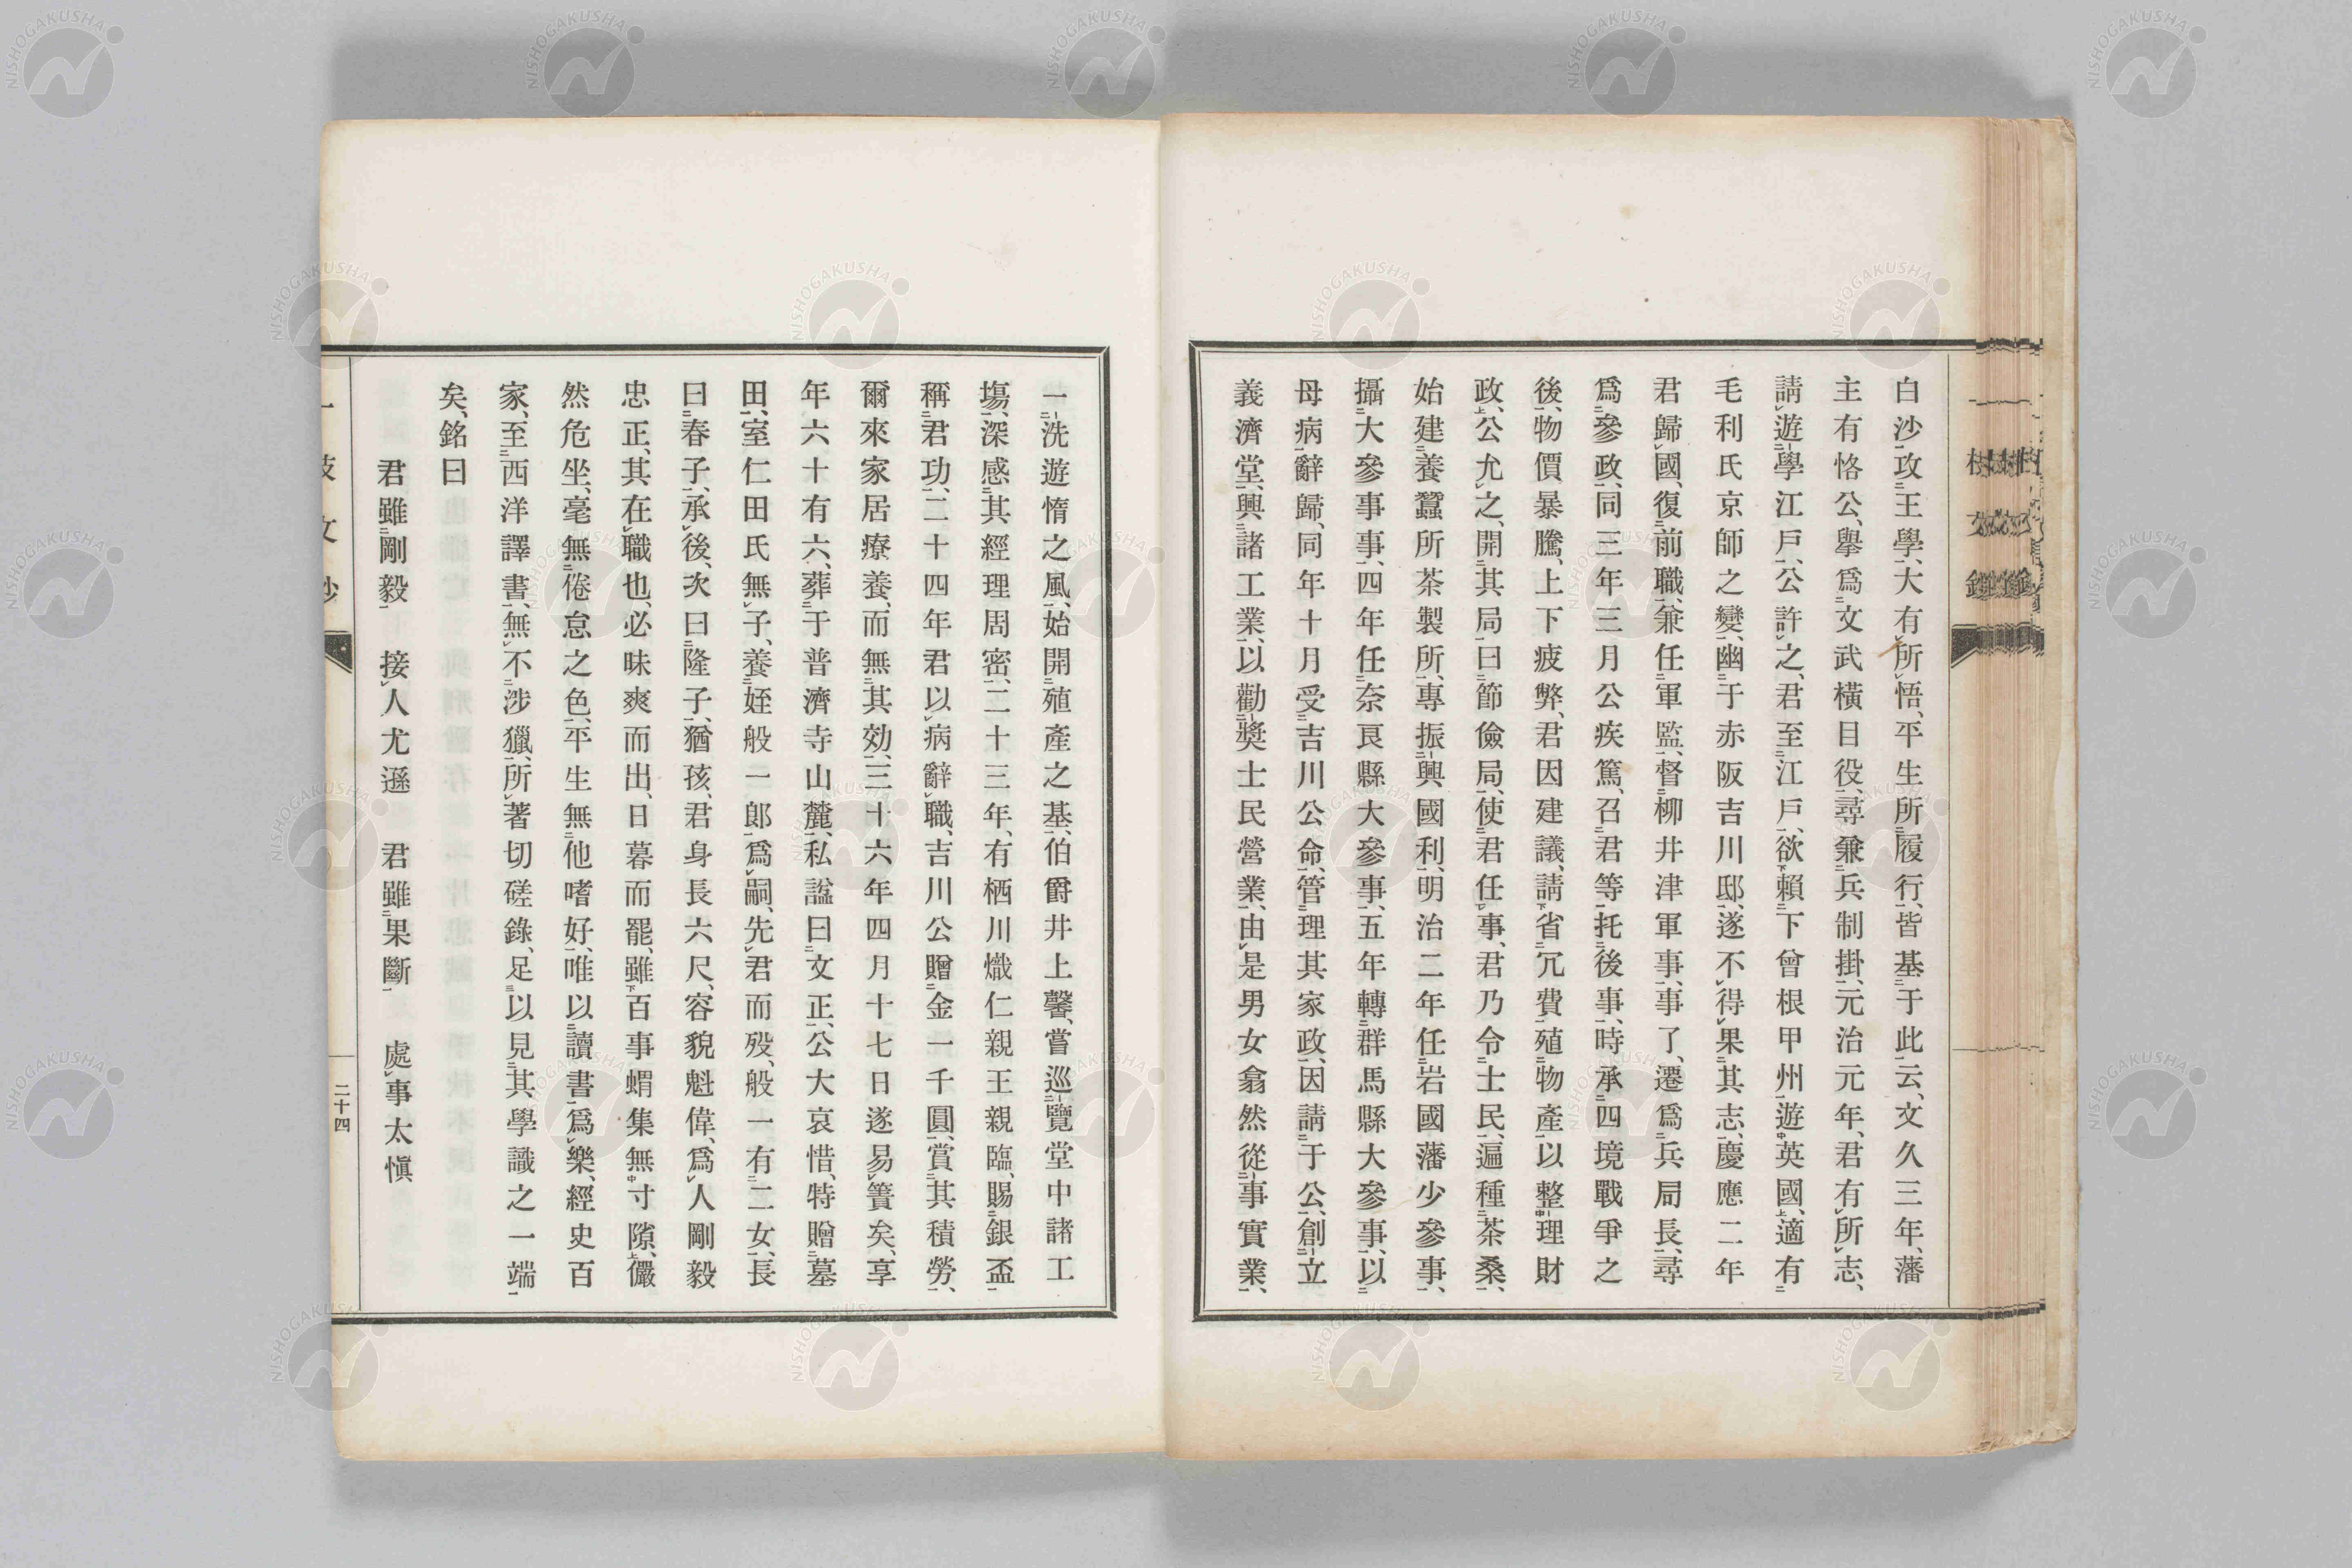 白沙、攻王學、大有所悟、平生所履行、皆基于此云、文久三年、藩
主有恪公、擧爲文武橫目役、尋兼兵制掛、元治元年、君有所志、
請遊學江戶、公許之、君至江戶、欲賴下曾根甲州遊英國、適有
毛利氏京師之變、幽于赤阪吉川邸、遂不得果其志、慶應二年
君歸國、復前職、兼任軍監、督柳井津軍事、事了、遷爲兵局長、尋
爲參政、同三年三月公疾篤、召君等托後事、時承四境戰爭之
後、物價暴騰、上下疲弊、君因建議、請省冗費殖物產以整理財
政、公允之、開其局、曰節儉局、使君任事、君乃令士民遍種茶桑、
始建養蠶所茶製所、專振興國利、明治二年任岩國藩少參事、
攝大參事事、四年任奈良縣大參事、五年轉群馬縣大參事、以
母病辭歸、同年十月受吉川公命、管理其家政、因請于公、創立
義濟堂、興諸工業、以勸奬士民營業、由是男女翕然從事實業、
一洗遊惰之風、始開殖產之基、伯爵井上馨、嘗巡覽堂中諸工
塲、深感其經理周密、二十三年、有栖川熾仁親王親臨、賜銀盃
稱君功、二十四年君以病辭職、吉川公贈金一千圓、賞其積勞、
爾來家居療養、而無其効、三十六年四月十七日遂易簀矣、享
年六十有六、葬于普濟寺山麓、私諡曰文正、公大哀惜、特贈墓
田、室仁田氏無子、養姪般一郞爲嗣、先君而歿、般一有二女、長
曰春子、承後、次曰隆子、猶孩、君身長六尺、容貌魁偉、爲人剛毅
忠正、其在職也、必昧爽而出、日暮而罷、雖百事蝟集無寸隙、儼
然危坐、毫無倦怠之色、平生無他嗜好、唯以讀書爲樂、經史百
家、至西洋譯書、無不涉獵、所著切磋錄、足以見其學識之一端
矣、銘曰
君雖剛毅　接人尤遜　君雖果斷　處事太愼
二十四